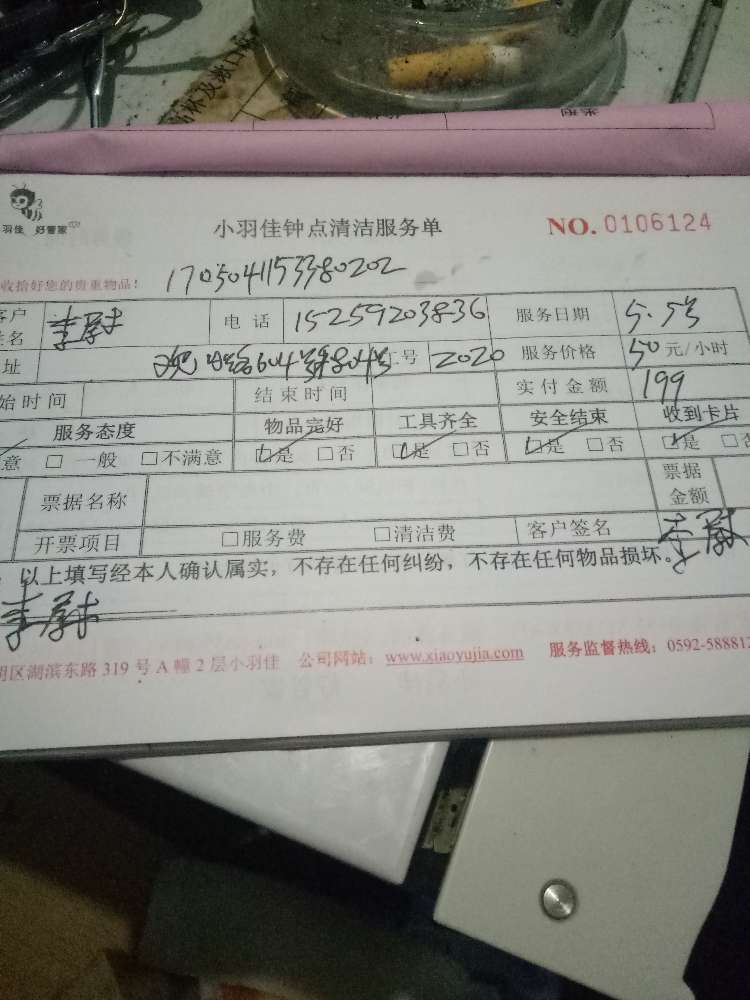 羽佳 好管家
小羽佳钟点清洁服务单
NO. 0106124
收拾好您的贵重物品!
1705041153380202
客户签名 李蔚 电话 15259203836 服务日期 5.5号
址 604 804号 工号 2020 服务价格 50 元/小时
始时间 结束时间 实付金额 199
服务态度 物品完好 工具齐全 安全结束 收到卡片
意 □ 一般 □不满意 □是 □否 □是 □否 □是 □否 □是 □否
票据名称 票据金额
开票项目 □服务费 □清洁费 客户签名 李蔚
以上填写经本人确认属实,不存在任何纠纷,不存在任何物品损坏。
李蔚
明区湖滨东路 319 号 A 幢 2 层小羽佳 公司网站: www.xiaoyujia.com 服务监督热线: 0592-588812